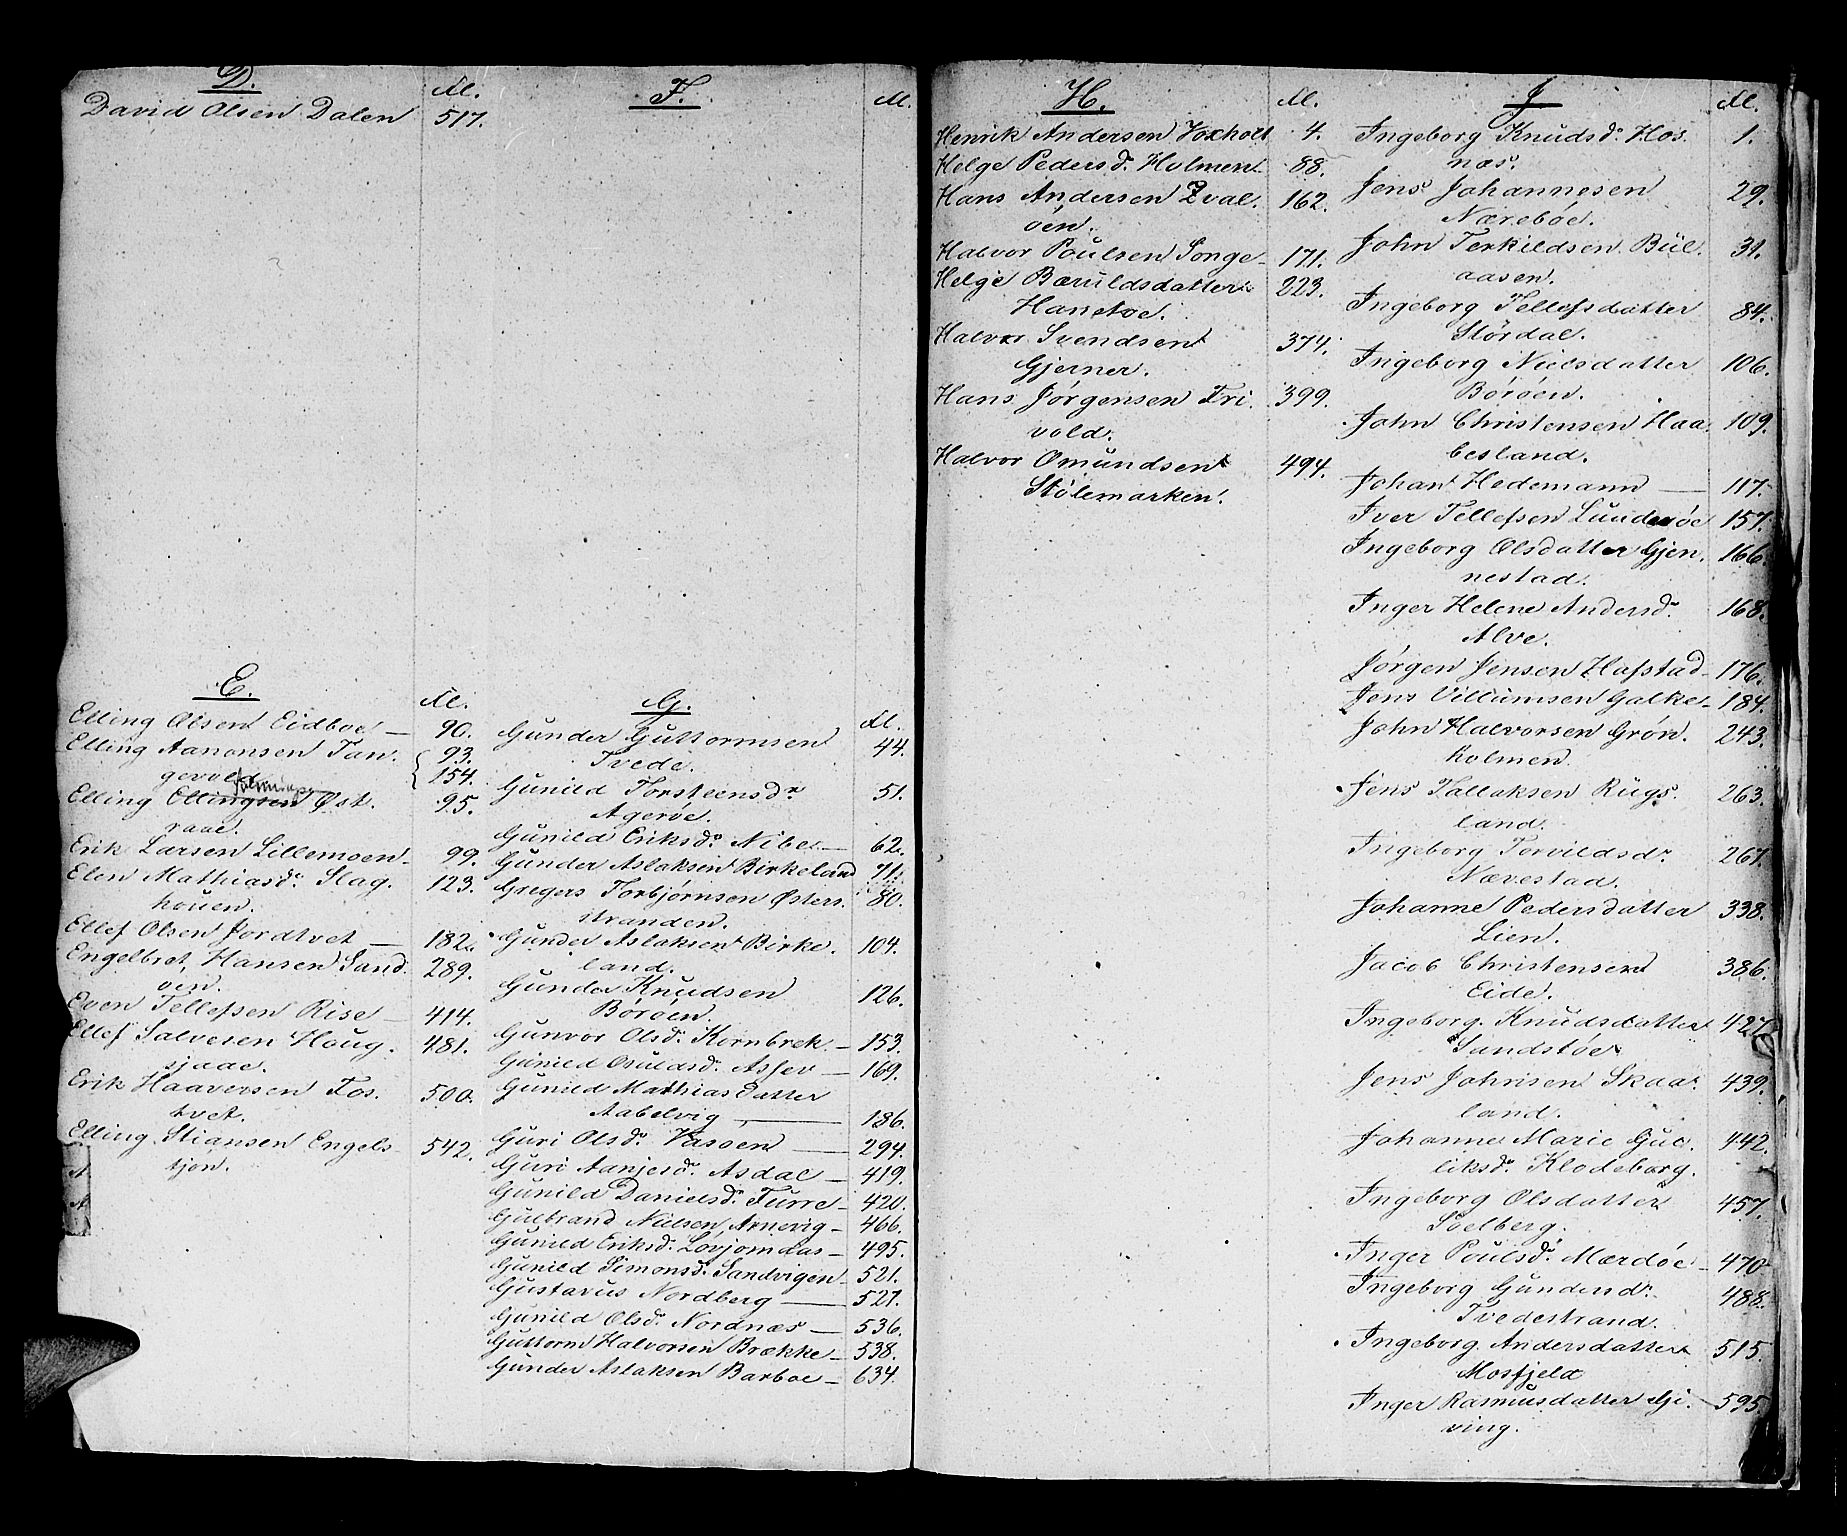 D.
Al.
David Olsen Dalen 517.
E.
Al.
Elling Olsen Eidboe — 90.
Elling Aanonsen Tan- 93.
gevold. 154.
Elling Ellingsen Øst- 95.
raae.
Erik Larsen Lillemoen 99.
Elen Mathiasdr. Slag- 123.
houen.
Ellef Olsen Jordtvet — 182.
Engelbret Hansen Sand- 289.
öen.
Even Tellefsen Rise — 414.
Ellef Salvesen Houg- 481.
sjaae.
Erik Haaversen Fos- 500.
tvet.
Elling Stiansen Engels- 542.
tjen.
F.
Al.
G.
Al.
Gunder Guttormsen 44.
Tvede.
Gunild Torsteensdr. 51.
Ageröe.
Gunild Eriksdr. Nibe — 62.
Gunder Aslaksen Birkeland 71.
Gregers Torbjørnsen Østers- 80.
stranden.
Gunder Aslaksen Birke- 104.
land.
Gunder Knudsen 126.
Böröen.
Gunvor Olsdr. Kornbrek — 153.
Gunild Osuldsdr. Assev — 169.
Gunild Mathiasdatter
Aabelvig — 186.
Guri Olsdr. Vasoen — 294.
Guri Aanjesdr. Asdal — 419.
Gunild Danielsdr. Furre — 420.
Gulbrand Nielsen Arnevig — 466.
Gunild Eriksdr. Lövjomdas — 495.
Gunild Simonsdr. Sandvigen — 521.
Gustavus Nordberg — 527.
Gunild Olsdr. Nordnæs — 536.
Guttorm Halvorsen Brække — 538.
Gunder Aslaksen Barboe — 634.
H.
Al.
Henrik Andersen Voxholt 4.
Helge Pedersdr. Holmen 88.
Hans Andersen Qval- 162.
öen.
Halvor Poulsen Songe — 171.
Helge Bæruldsdatter 223.
Hanstoe.
Halvor Svendsen 374.
Gjerner.
Hans Jørgensen Fri- 399.
vold.
Halvor Omundsen 494.
Stølemarken.
J
Al.
Ingeborg Knudsdr. Hos- 1.
næs.
Jens Johannesen 29.
Næreböe.
John Terkildsen Bül- 31.
aasen.
Ingeborg Tellefsdatter 84.
Stördal.
Ingeborg Nielsdatter 106.
Böröen.
John Christensen Haa- 109.
besland.
Johan Hedemann — 117.
Iver Tellefsen Lunderöe 157.
Ingeborg Olsdatter Gjen- 166.
nestad.
Inger Helene Andersdr. 168.
Alve.
Jørgen Jensen Hafstad — 176.
Jens Villumsen Galke — 184.
John Halvorsen Grøn- 243.
holmen.
Jens Tallaksen Rugs- 263.
land.
Ingeborg Torvildsdr. 267.
Nævestad.
Johanne Pedersdatter 338.
Lien.
Jacob Christensen 386.
Eide.
Ingeborg Knudsdatter 427.
Sandstöe
Jens Johnsen Skaa- 439.
land.
Johanne Marie Gul- 442.
liksdr. Klodeborg.
Ingeborg Olsdatter 457.
Soelberg.
Inger Poulsdr. Mærdöe — 470
Ingeborg Gundersdr. 488.
Tvedestrand.
Ingeborg Andersdatter 515.
Mosfjeld
Inger Rasmusdatter Gi- 595.
ving.